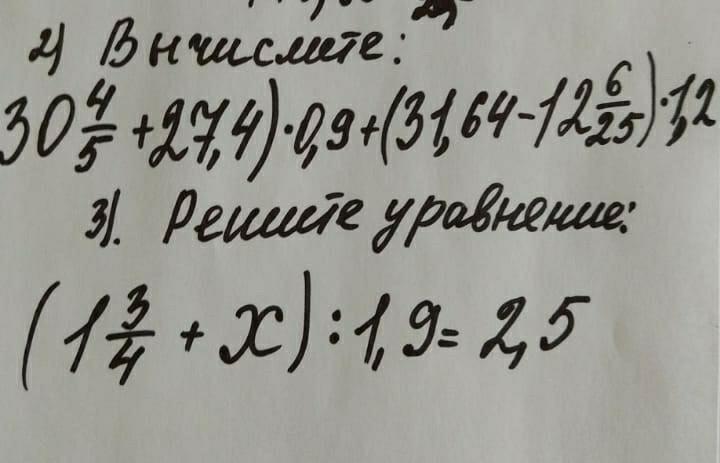 2) Вычислите:
30 4/5 + 27,4) · 0,9 + (31,64 - 12 6/25) · 1,2
3). Решите уравнение:
(1 3/4 + x) : 1,9 = 2,5